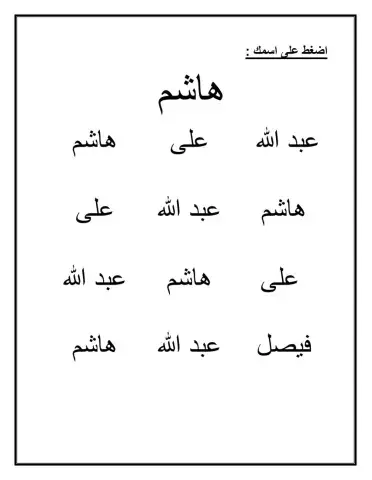 اضغط على اسمك :
هاشم
عبد الله على هاشم
هاشم عبد الله على
على هاشم عبد الله
فيصل عبد الله هاشم